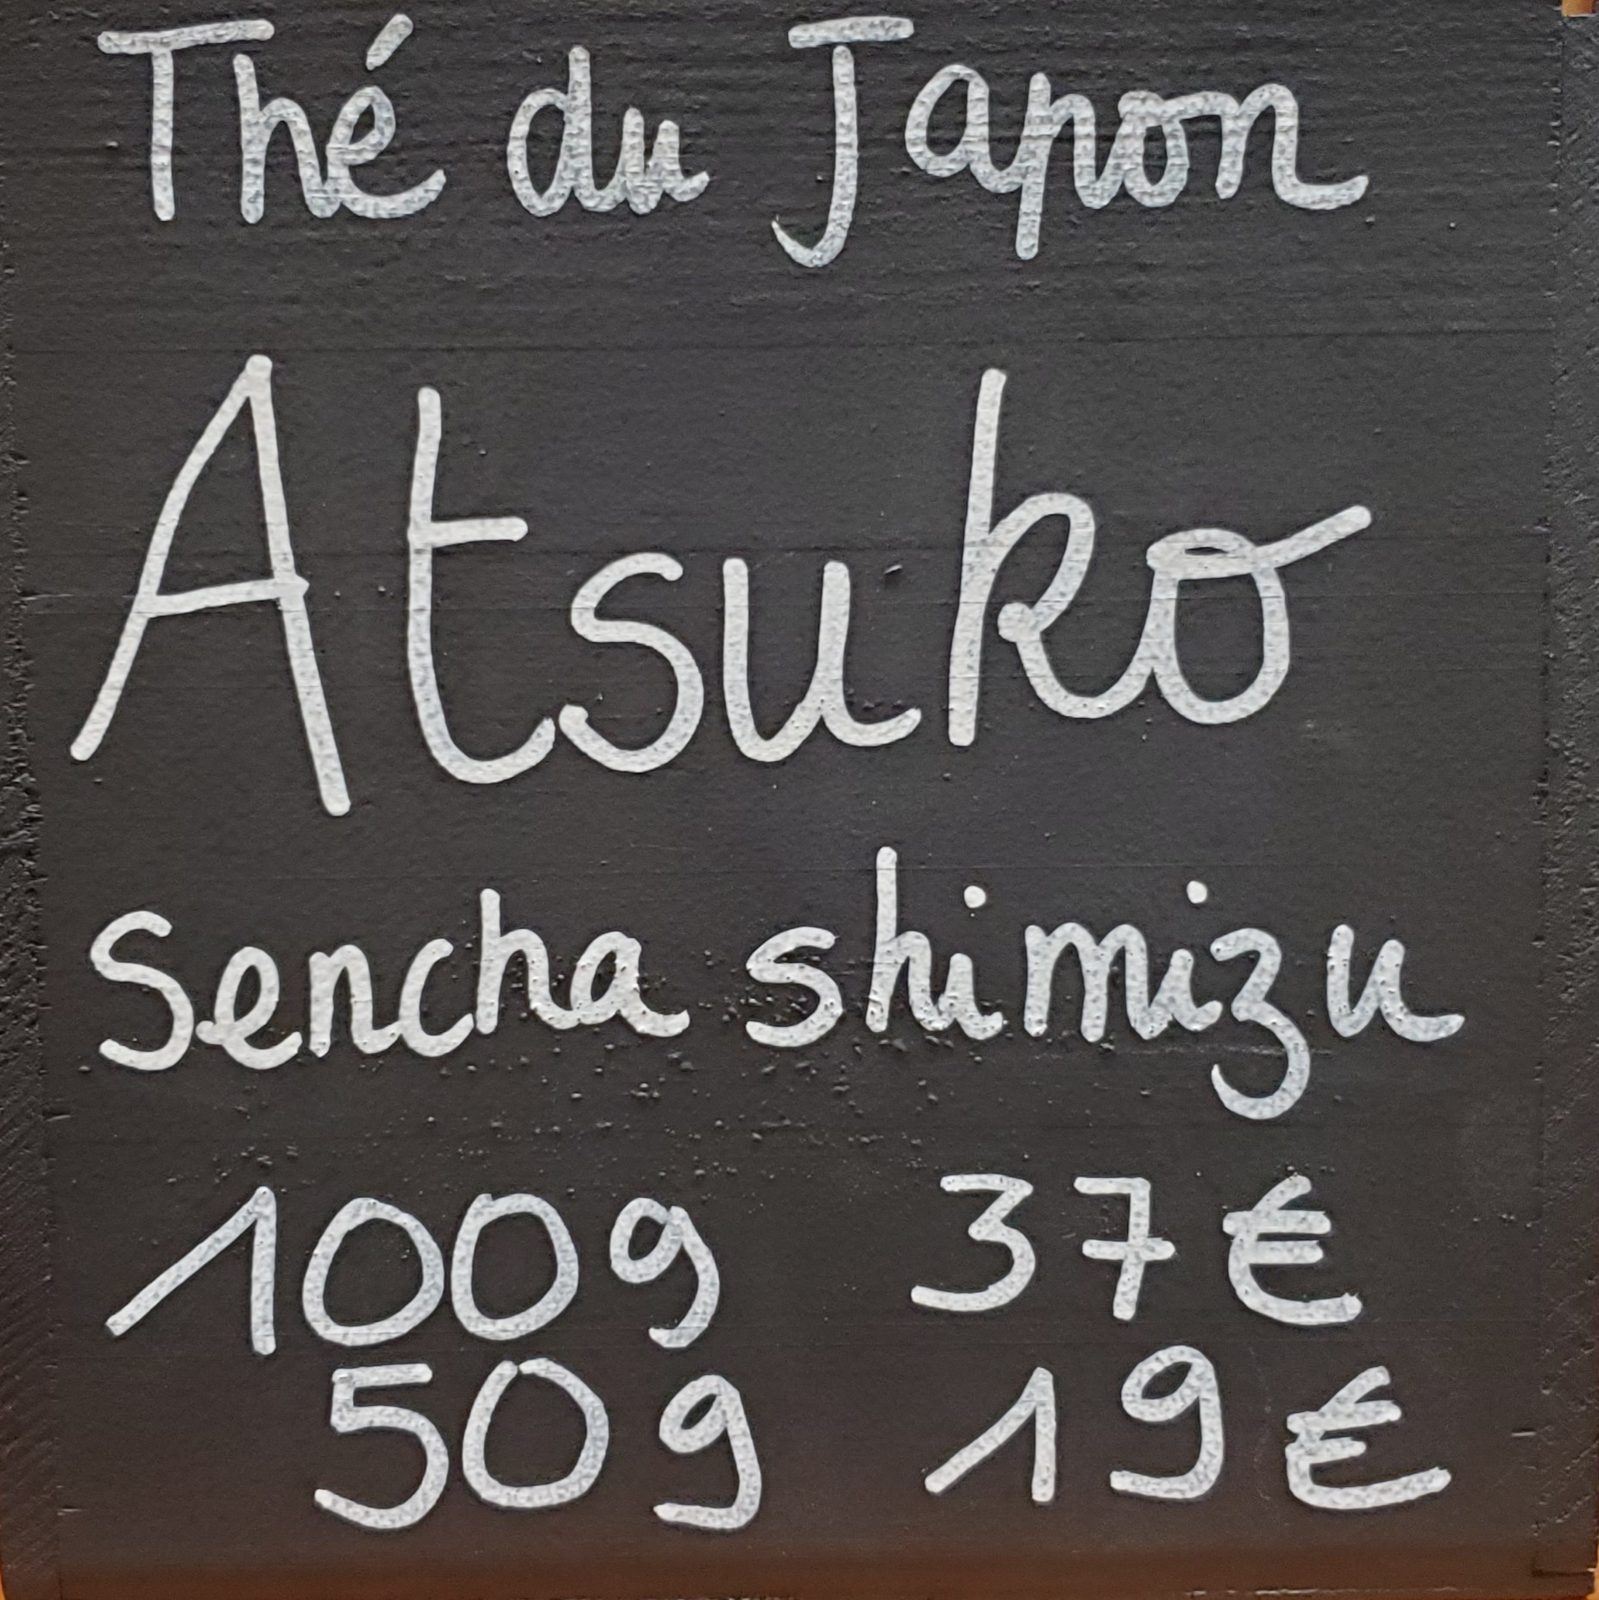 Thé du Japon
Atsuko
Sencha shimizu
100g 37€
50g 19€